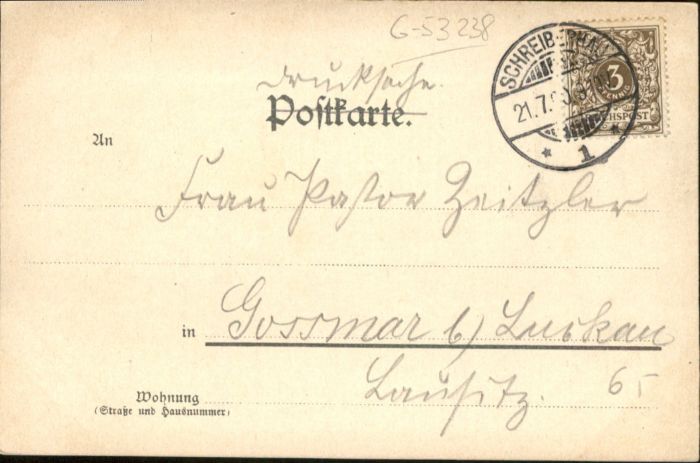 G-53238
SCHREIBERHAU
3
PFENNIG
REICHSPOST
21.7.
1
Drucksache.
Postkarte.
An
Frau Pastor Zeitzler
in Gossmar b/ Luckau
Lausitz.
65
Wohnung
(Straße und Hausnummer)